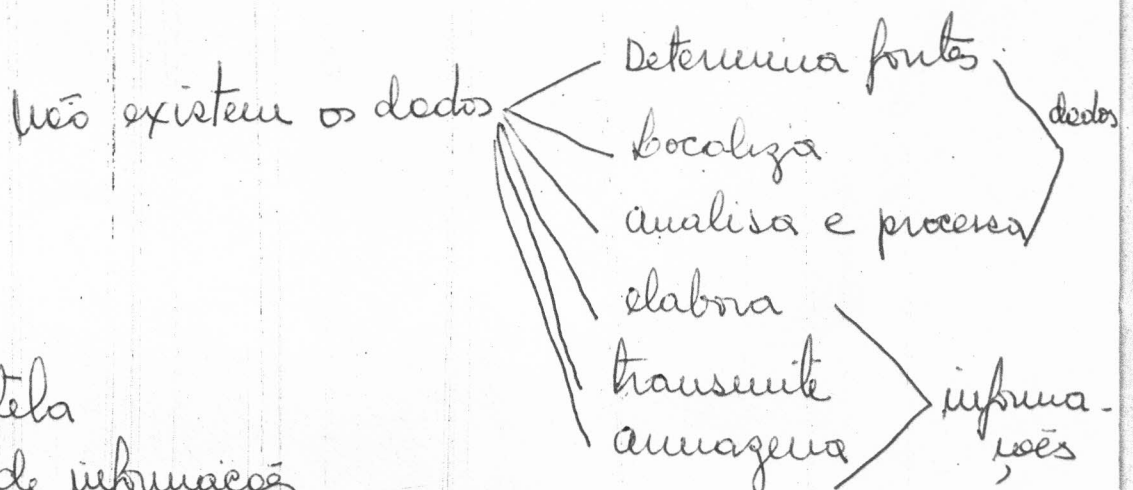 Não existem os dados
Determina fontes
Localiza
analisa e processa
dados
elabora
transmite
armazena
informa-
ções
tela
de informação